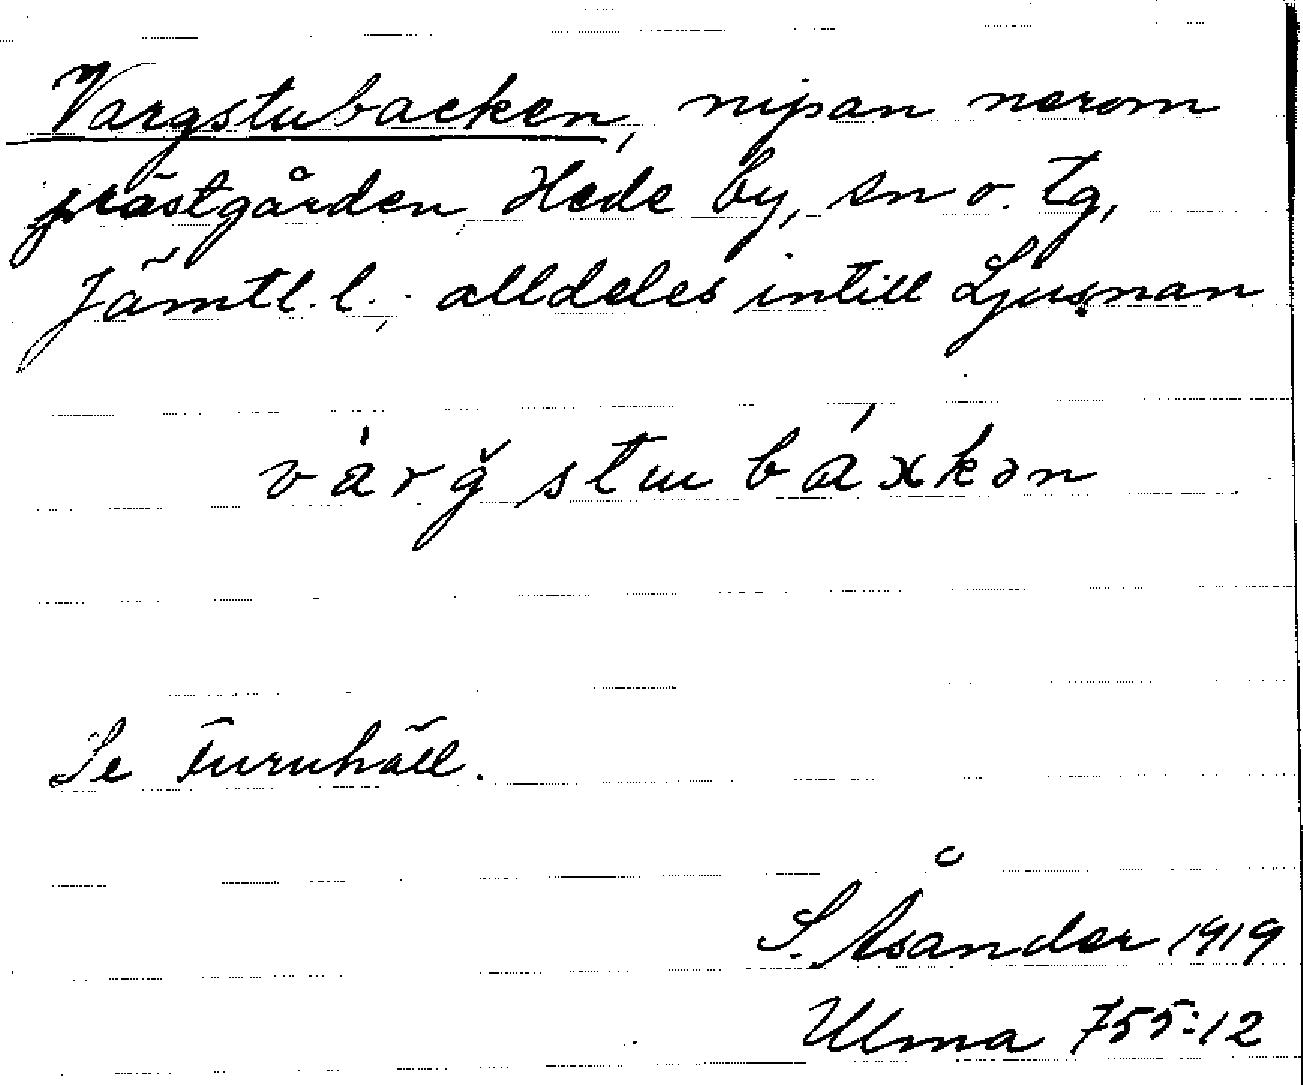 Vargstubacken, nipan nerom
prästgården, Hede by, sn o. tg,
Jämtl. l., alldeles intill Ljusnan
várǧ stuu báxkən
Se Turuhäll.
S. Åsander 1919
Ulma 755:12